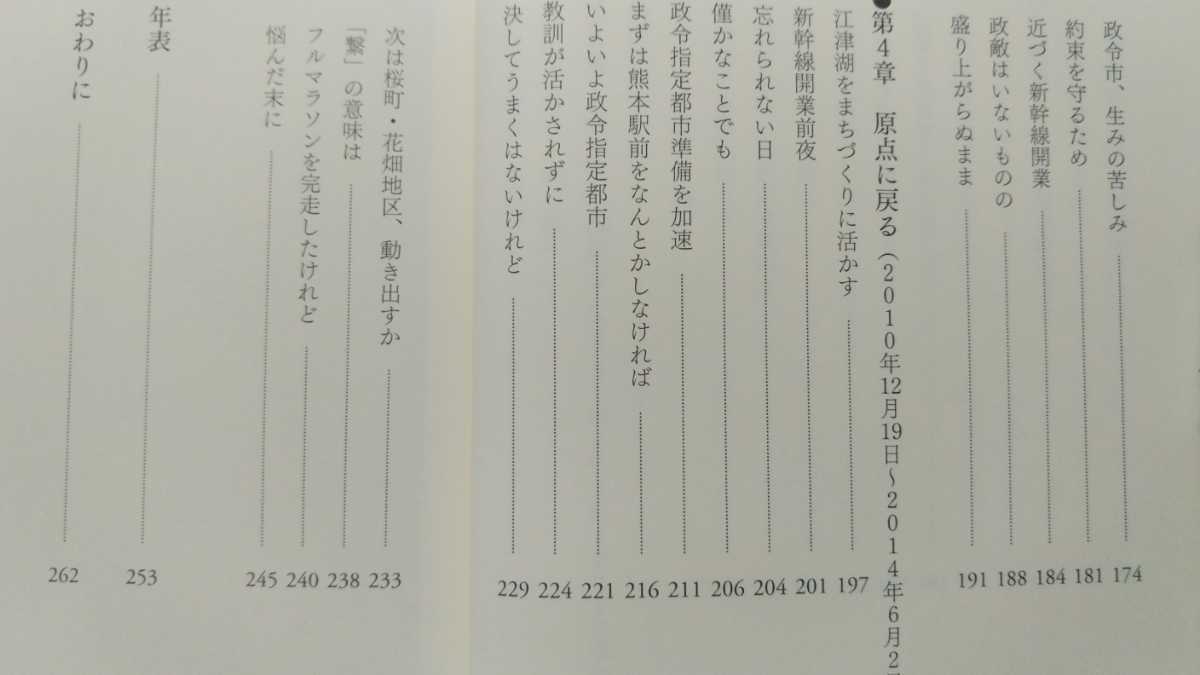 政令市、生みの苦しみ 174
約束を守るため 181
近づく新幹線開業 184
政敵はいないものの 188
盛り上がらぬまま 191
●第4章 原点に戻る(2010年12月19日~2014年6月2
江津湖をまちづくりに活かす 197
新幹線開業前夜 201
忘れられない日 204
僅かなことでも 206
政令指定都市準備を加速 211
まずは熊本駅前をなんとかしなければ 216
いよいよ政令指定都市 221
教訓が活かされずに 224
決してうまくはないけれど 229
次は桜町・花畑地区、動き出すか 233
「繋」の意味は 238
フルマラソンを完走したけれど 240
悩んだ末に 245
年表 253
おわりに 262